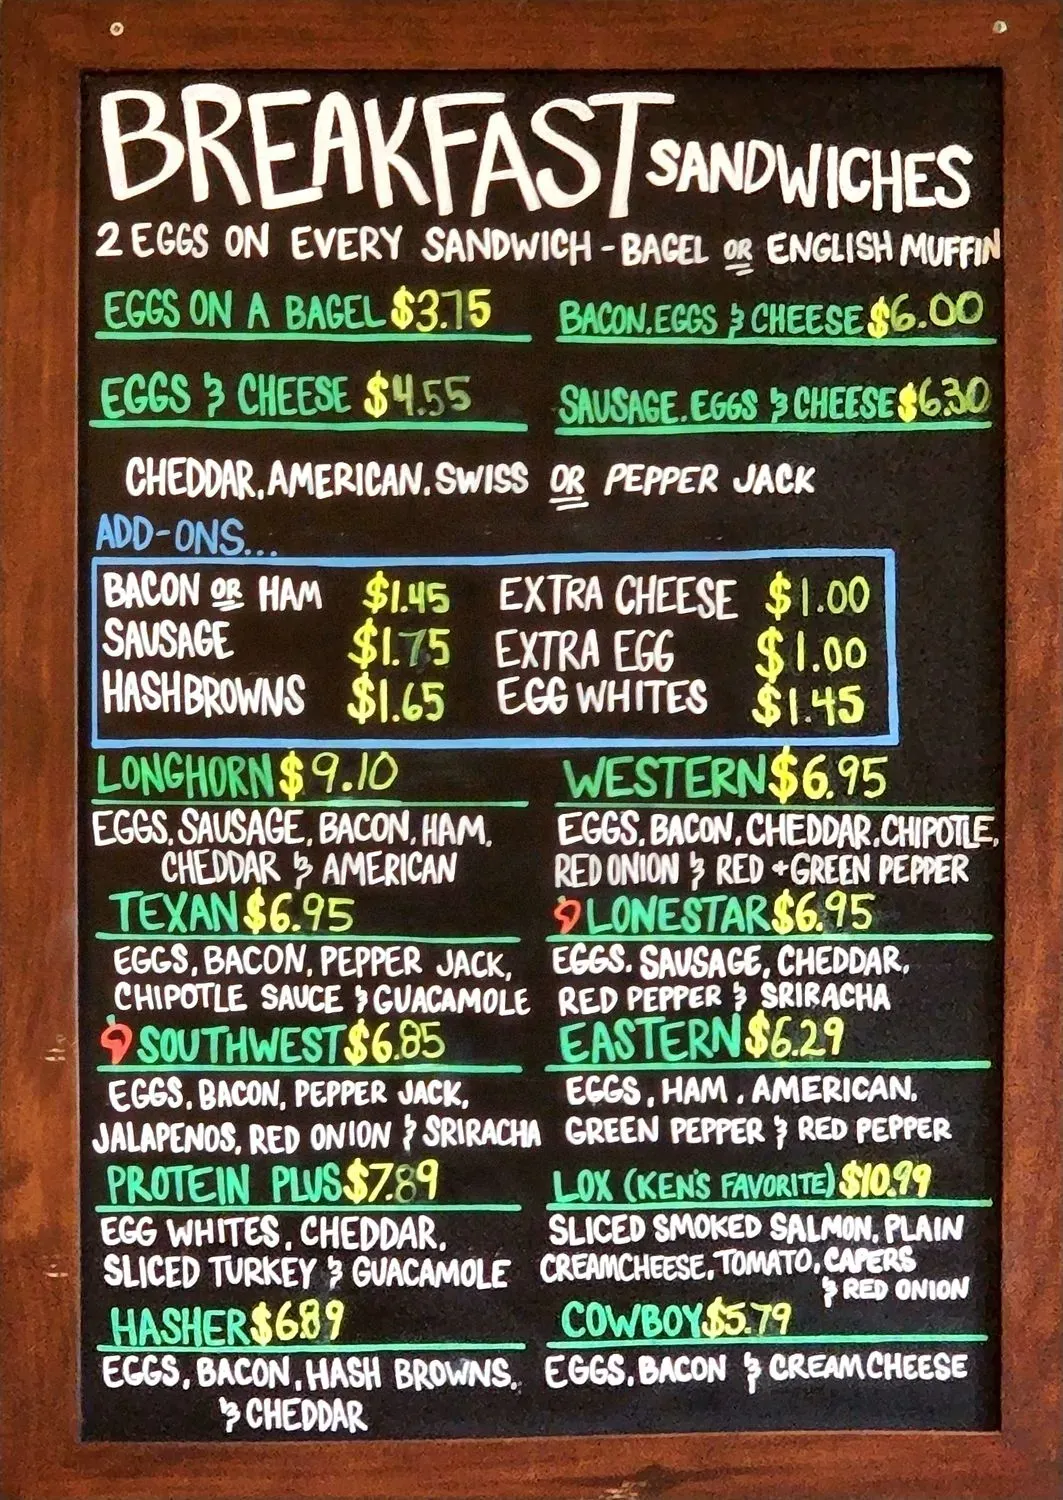 BREAKFAST SANDWICHES
2 EGGS ON EVERY SANDWICH - BAGEL OR ENGLISH MUFFIN
EGGS ON A BAGEL $3.75
BACON, EGGS & CHEESE $6.00
EGGS & CHEESE $4.55
SAUSAGE, EGGS & CHEESE $6.30
CHEDDAR, AMERICAN, SWISS OR PEPPER JACK
ADD-ONS...
BACON OR HAM $1.45
SAUSAGE $1.75
HASHBROWNS $1.65
EXTRA CHEESE $1.00
EXTRA EGG $1.00
EGG WHITES $1.45
LONGHORN $9.10
EGGS, SAUSAGE, BACON, HAM,
CHEDDAR & AMERICAN
WESTERN $6.95
EGGS, BACON, CHEDDAR, CHIPOTLE,
RED ONION & RED + GREEN PEPPER
TEXAN $6.95
EGGS, BACON, PEPPER JACK,
CHIPOTLE SAUCE & GUACAMOLE
LONESTAR $6.95
EGGS, SAUSAGE, CHEDDAR,
RED PEPPER & SRIRACHA
SOUTHWEST $6.85
EGGS, BACON, PEPPER JACK,
JALAPENOS, RED ONION & SRIRACHA
EASTERN $6.29
EGGS, HAM, AMERICAN,
GREEN PEPPER & RED PEPPER
PROTEIN PLUS $7.89
EGG WHITES, CHEDDAR,
SLICED TURKEY & GUACAMOLE
LOX (KEN'S FAVORITE) $10.99
SLICED SMOKED SALMON, PLAIN
CREAMCHEESE, TOMATO, CAPERS
& RED ONION
HASHER $6.89
EGGS, BACON, HASH BROWNS,
& CHEDDAR
COWBOY $5.79
EGGS, BACON & CREAMCHEESE